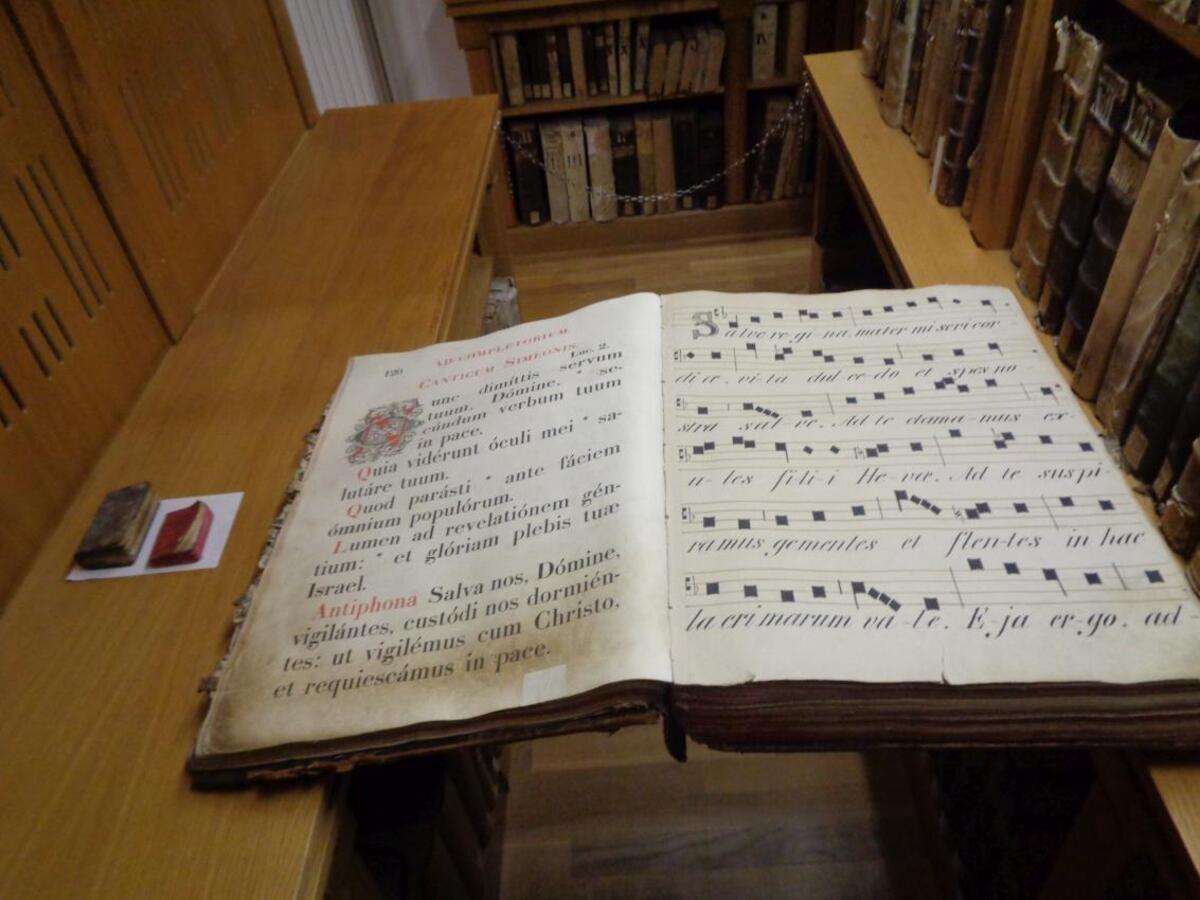 120
AD COMPLETORIUM.
CANTICUM SIMEONIS.
Luc. 2.
unc dimíttis servum
tuum, Dómine, * se-
cúndum verbum tuum
in pace.
Quia vidérunt óculi mei * sa-
lutáre tuum.
Quod parásti * ante fáciem
ómnium populórum.
Lumen ad revelatiónem gén-
tium: * et glóriam plebis tuæ
Israel.
Antiphona Salva nos, Dómine,
vigilántes, custódi nos dormién-
tes: ut vigilémus cum Christo,
et requiescámus in pace.
Salve re-gi-na, mater mi seri cor
di æ, vi-ta dul ce-do et spes no
stra sal-ve. Ad te clama-mus ex-
u-les fi-li-i He-væ. Ad te suspi
ramus gementes et flen-tes in hac
lacrimarum va-le. E-ja er-go, ad-